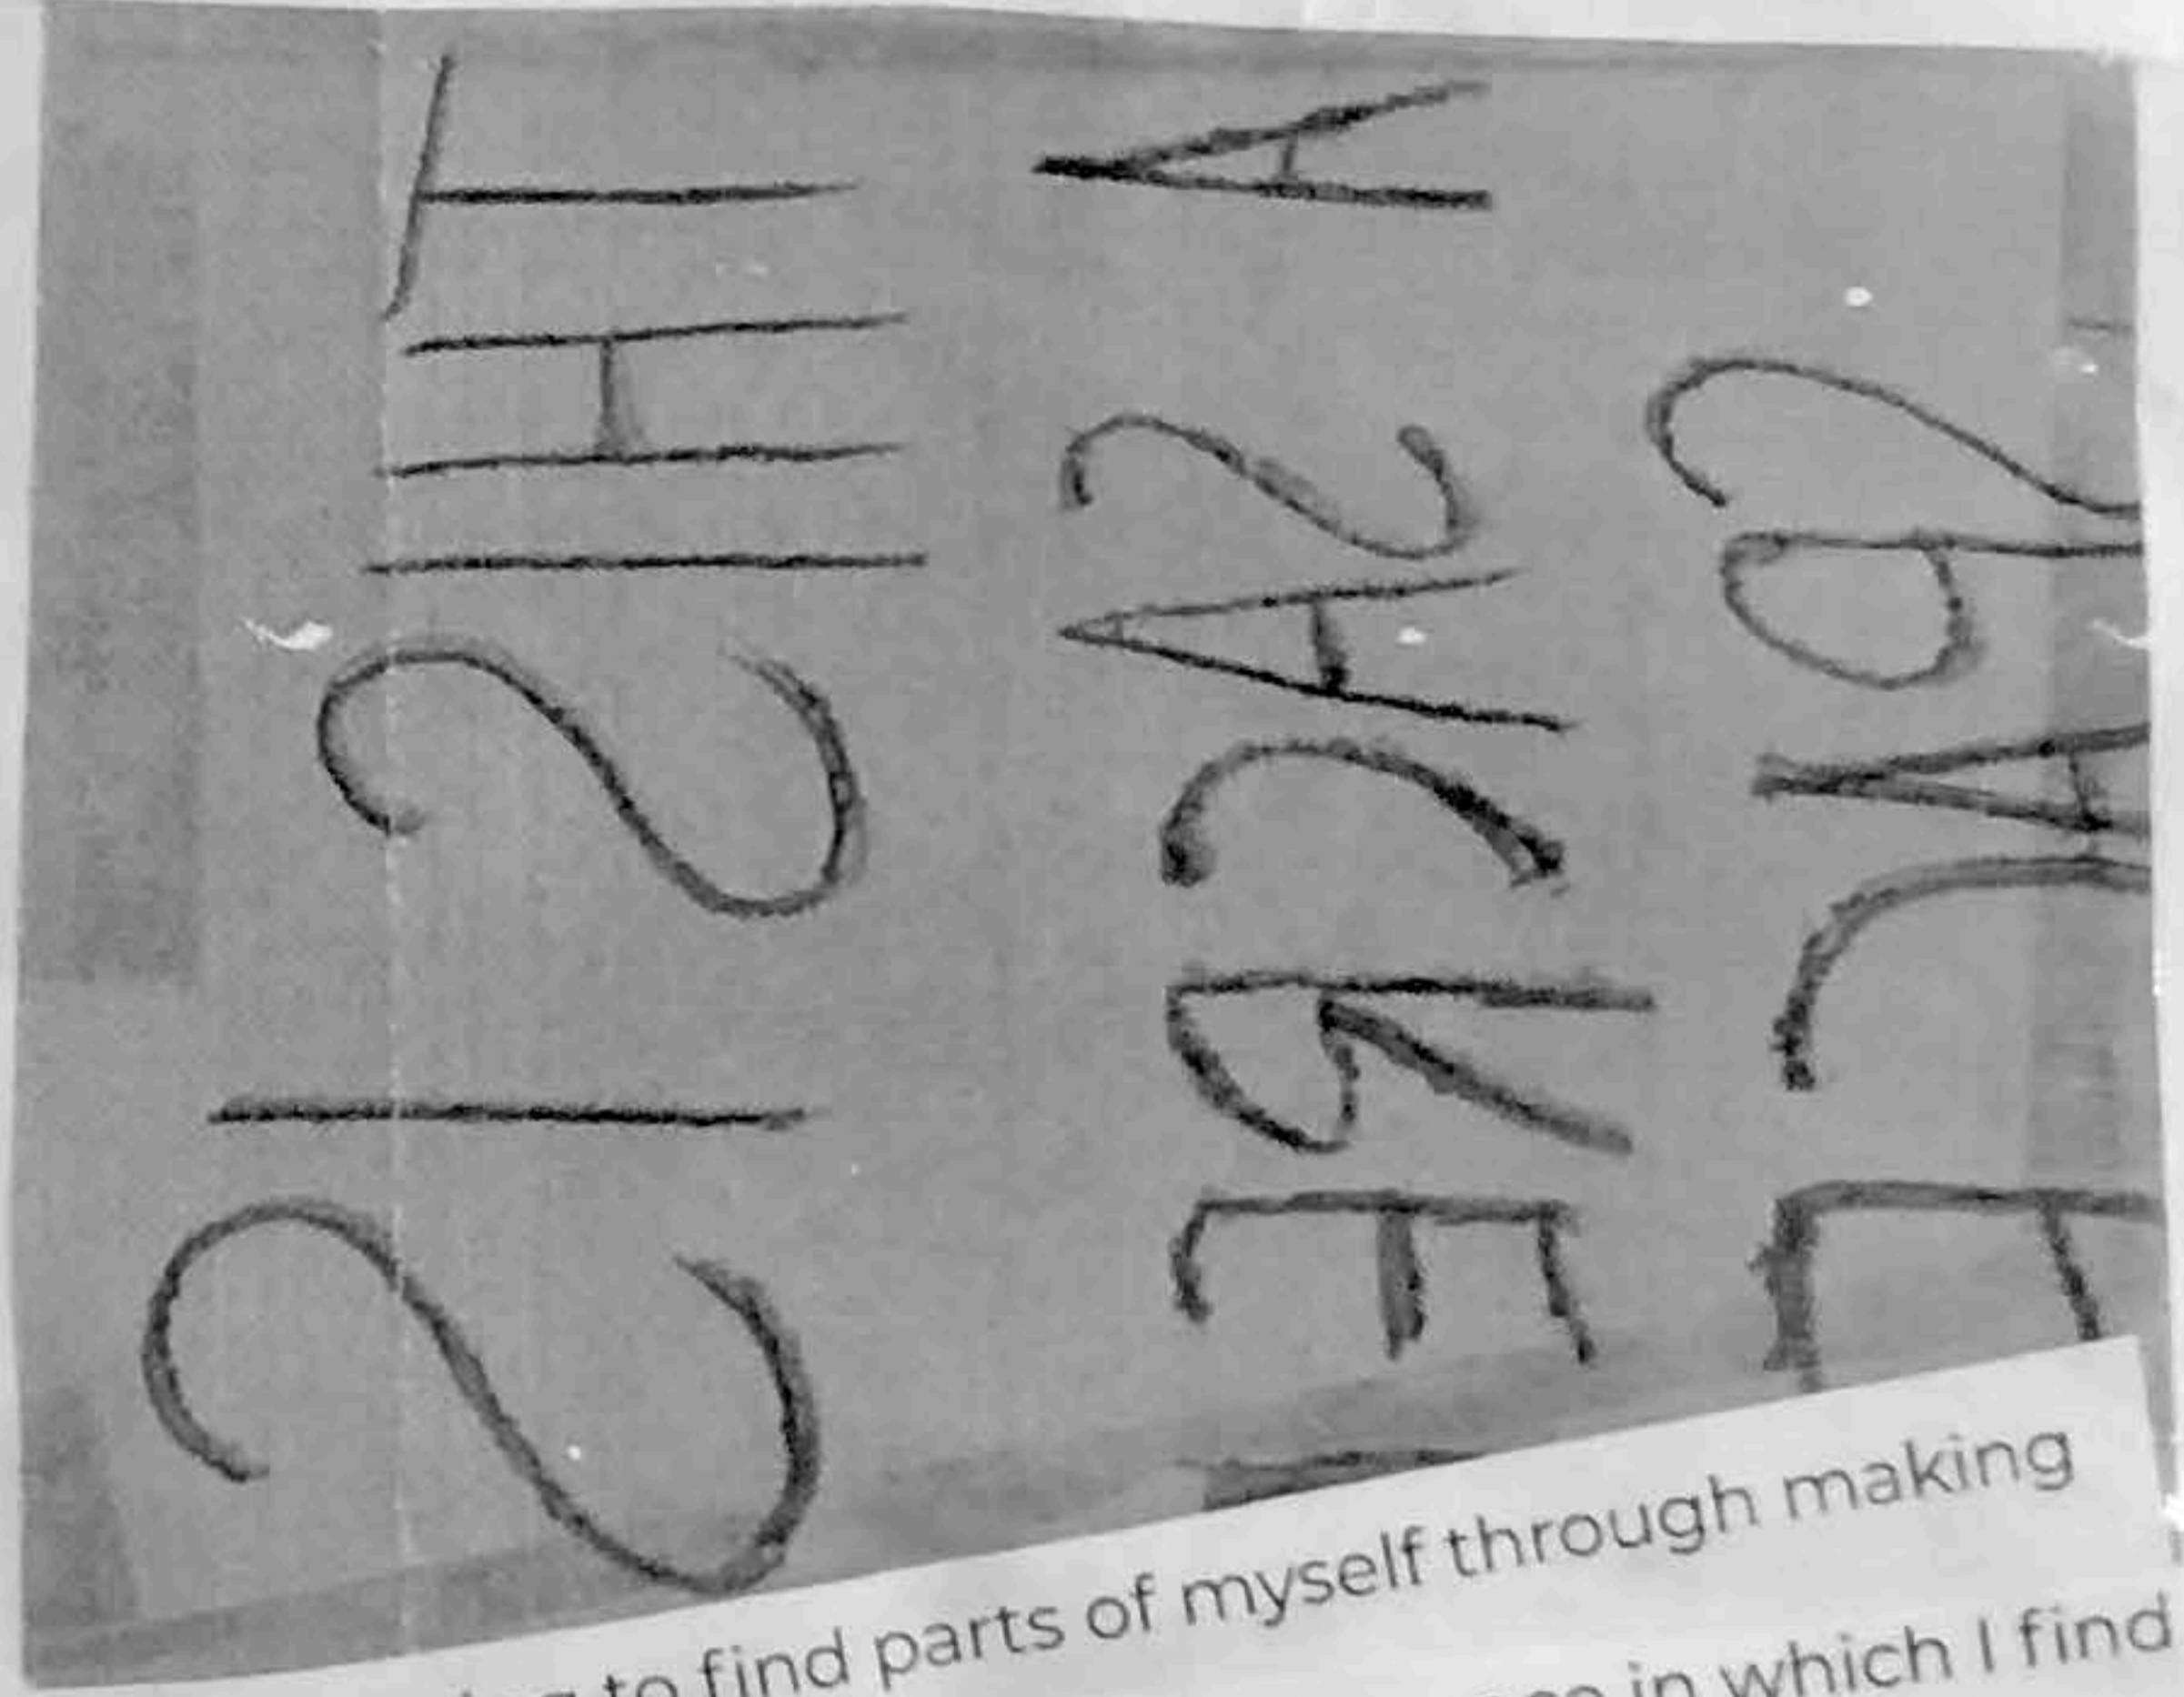 THIS IS
A SACRED
SPACE
to find parts of myself through making
in which I find